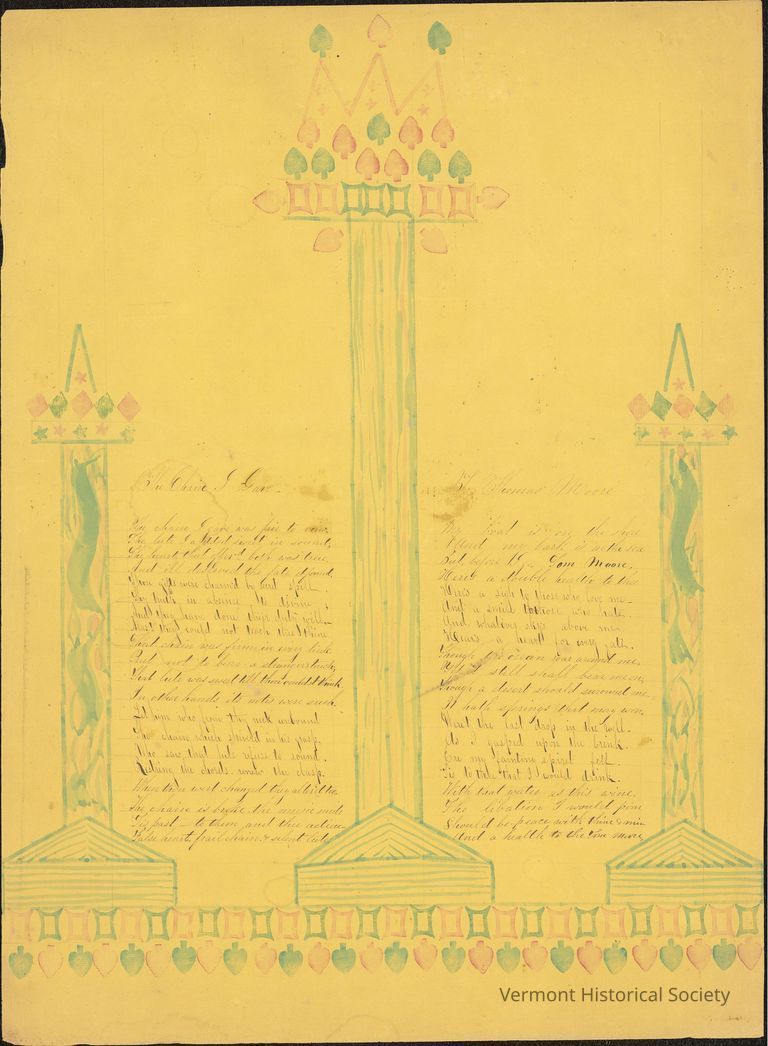 The Chain I Gave.
The chain I gave was fair to view.
The lute I added sweet in sound,
The heart that offer'd both was true
And ill deserved the fate it found,
These gifts were charmed by
Thy truth in absence to divine;
And they have done their duty well.
they could not teach thee thine
That chain was firm in every link
But not to bear a strangers touch,
That lute was sweet till thou couldst think
In other hands, its notes were such,
Let him who from thy neck unbound
The chain which shiver'd in his grasp.
Who saw that lute refuse to sound.
Restring the chords, renew the clasp.
When thou wert changed they altered too
The chain is broke the music mute
Tis past to them and thee adieu
False heart, frail chain, & silent lute
To Thomas Moore
My boat is on the shore
And my bark is on the sea
But before I go Tom Moore,
Here's a double health to thee
Here's a sigh to those who love me.
And a smile to those who hate
And whatever skys above me
Hear's a heart for every fate.
Though the ocean roar around me,
It still shall bear me on,
Though a desert should surround me
It hath springs that may won
Wert the last drop in the well.
As I gasped upon the brink.
Ere my fainting spirit fell
Tis to thee that I would drink.
With that water as this wine.
The libation I would pour
Should be peace with thine & mine
And a health to thee Tom Moore
Vermont Historical Society